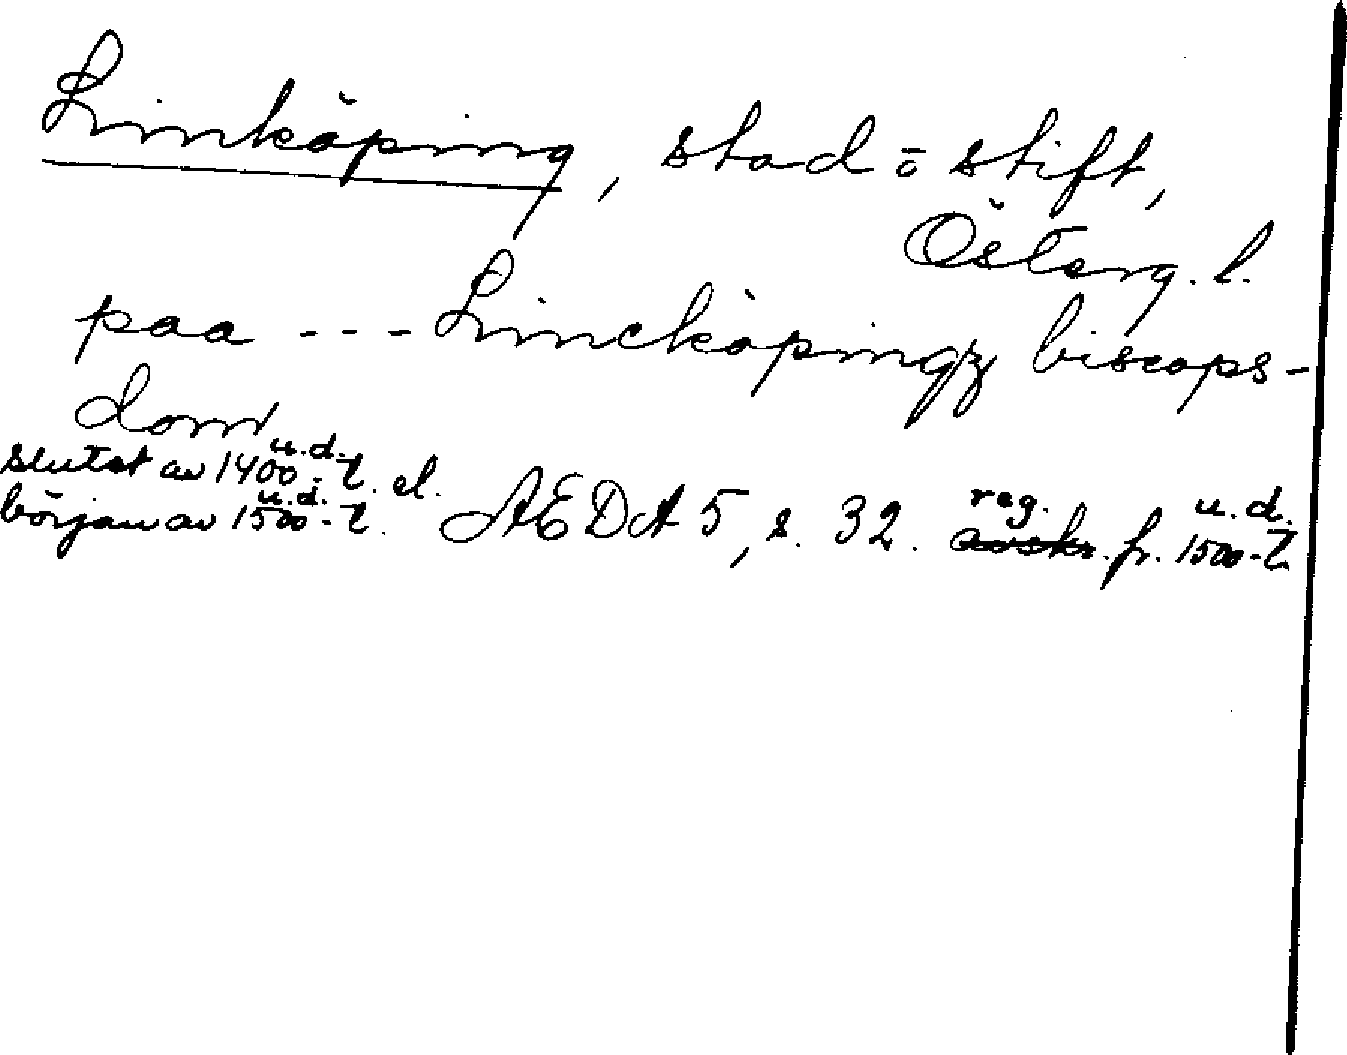 Linköping, stad o stift,
Österg. l.
paa --- Lincköpingz biscops-
dom
slutet av 1400-t. u.d. el.
början av 1500-t. u.d. AEDA 5, s. 32. reg. avskr. fr. 1500-t u.d.